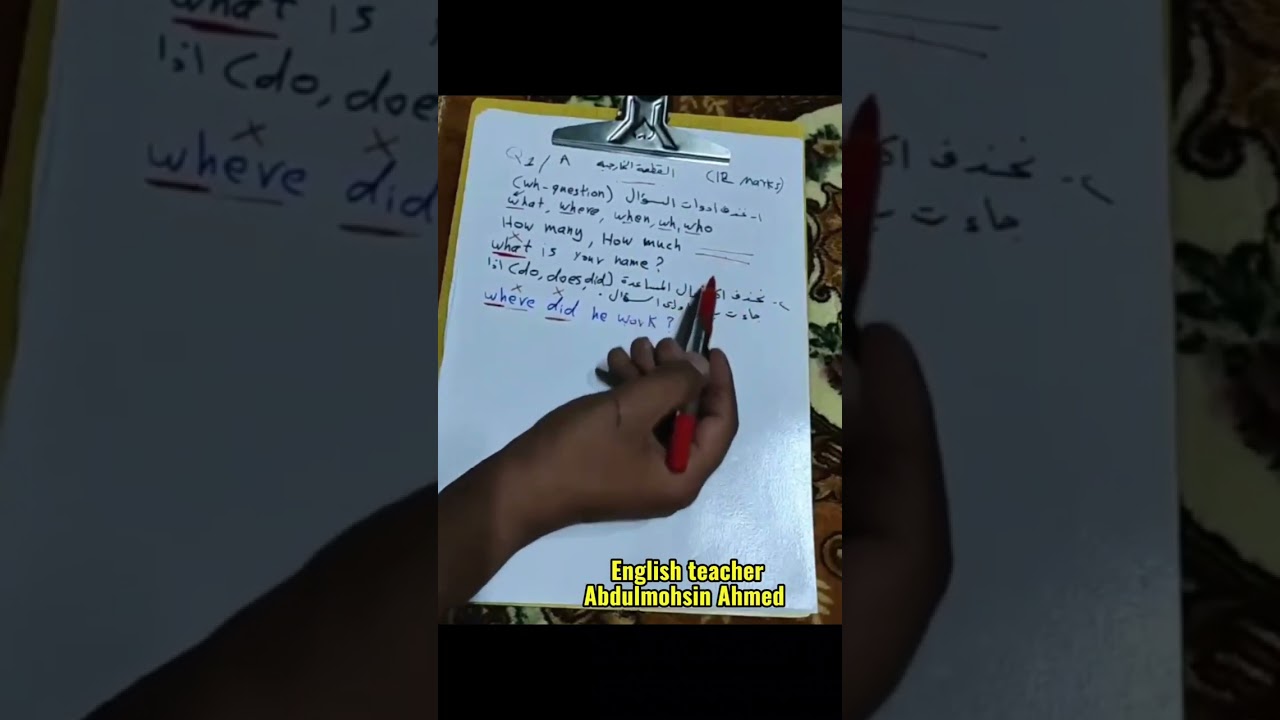 Q1/ A القطعة الخارجية (12 marks)
١- نحذف ادوات السؤال (wh-question)
what, where, when, wh, who
How many, How much
what is your name?
٢- نحذف المساعدة (do, does, did) اذا
جاءت السؤال.
where did he work?
English teacher
Abdulmohsin Ahmed